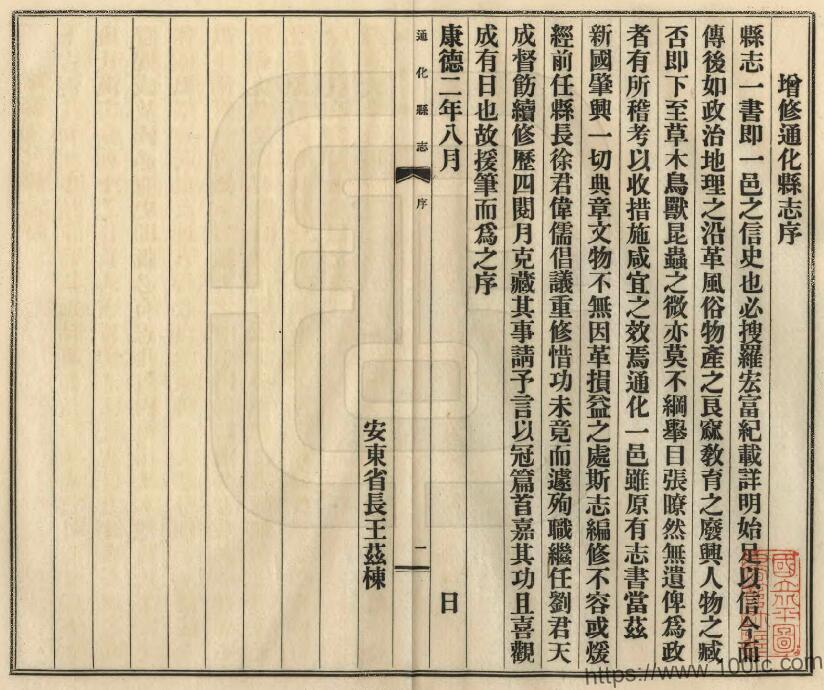 增修通化縣志序
縣志一書即一邑之信史也必搜羅宏富紀載詳明始足以信今而
傳後如政治地理之沿革風俗物產之良窳教育之廢興人物之臧
否即下至草木鳥獸昆蟲之微亦莫不綱舉目張瞭然無遺俾爲政
者有所稽考以收措施咸宜之效焉通化一邑雖原有志書當茲
新國肇興一切典章文物不無因革損益之處斯志編修不容或煖
經前任縣長徐君偉儒倡議重修惜功未竟而遽殉職繼任劉君天
成督飭續修歷四閱月克蕆其事請予言以冠篇首嘉其功且喜觀
成有日也故援筆而爲之序
康德二年八月 日
通化縣志 序 一
安東省長王茲棟
國立北平圖
https://www.1001c.com